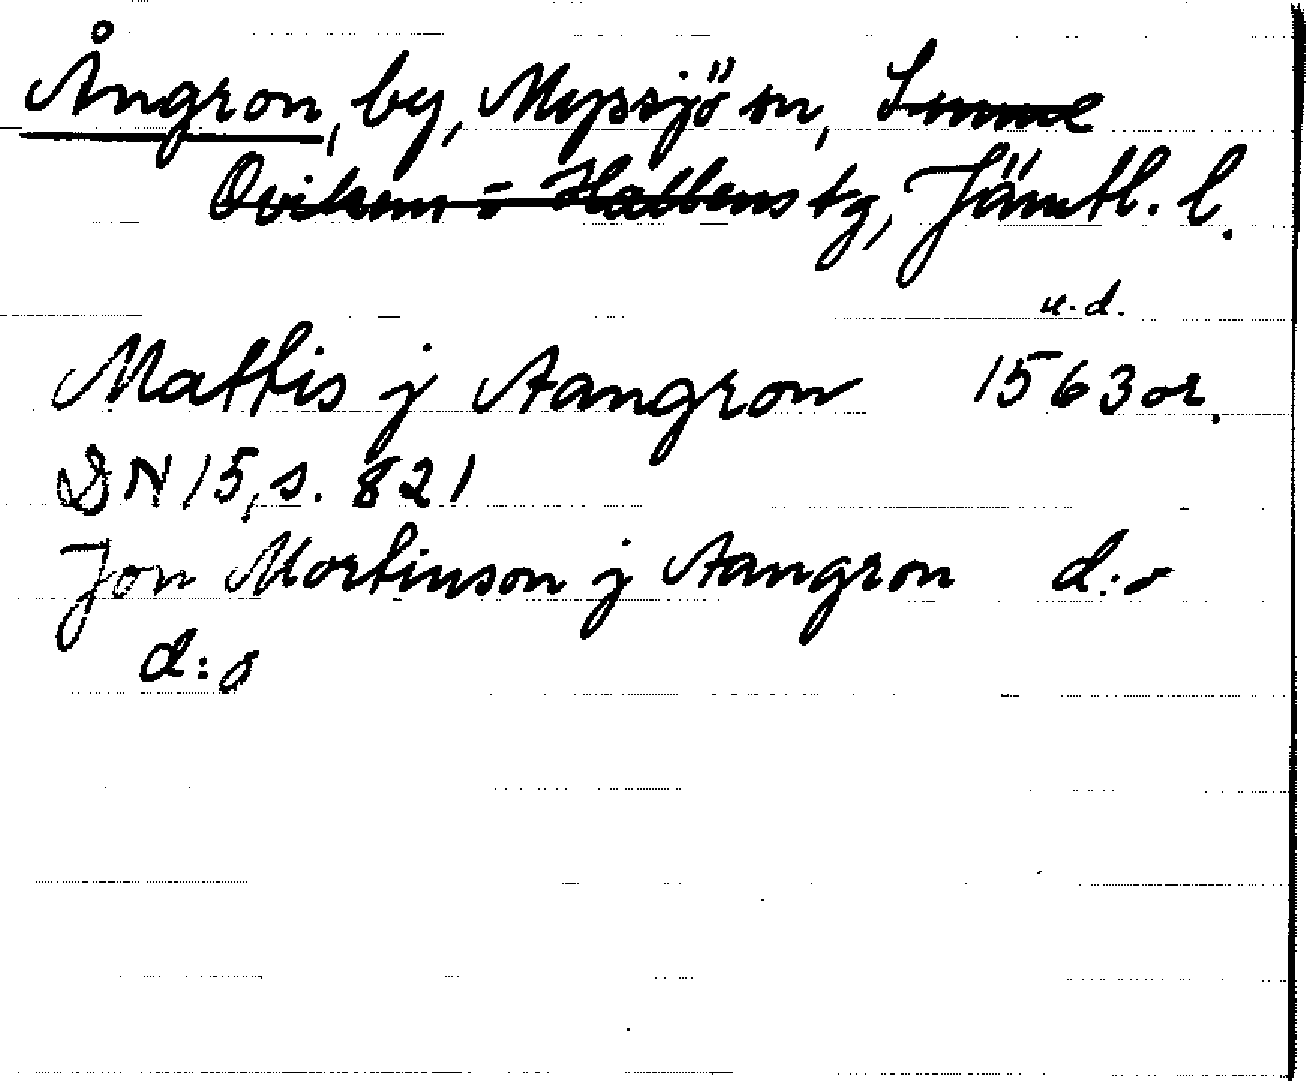 Ångron, by, Myssjö sn, Sunne
Ovikens o Hallens tg, Jämtl. l.
u.d.
Mattis j Aangron 1563 or.
DN 15, s. 821
Jon Mortinson j Aangron d:o
d:o